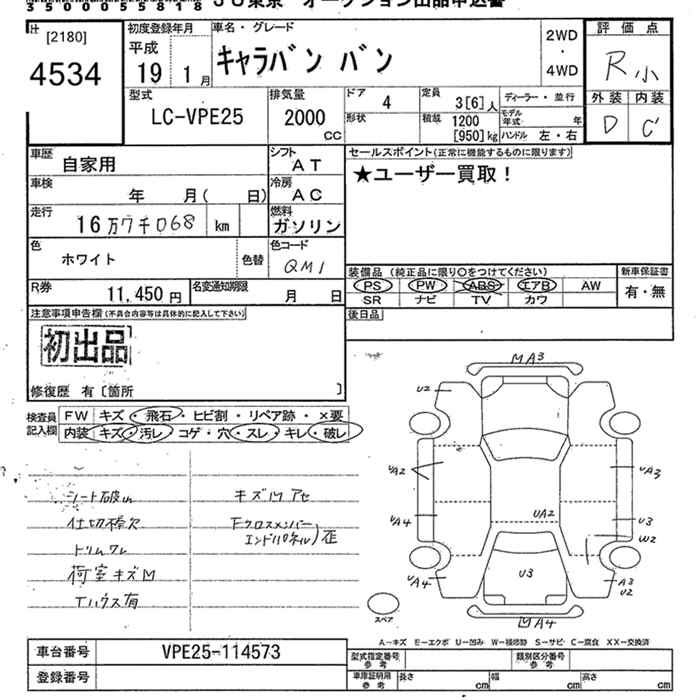 35000055818 JU東京 オークション出品申込書
[2180]
4534
初度登録年月
平成
19 1月
車名・グレード
キャラバン バン
2WD
・
4WD
評価点
R小
外装 内装
D C'
型式
LC-VPE25
排気量
2000
CC
ドア 4
形状
定員 3[6]人
積載 1200
[950]kg
ディーラー・並行
モデル年式 年
ハンドル 左・右
車歴 自家用
シフト AT
車検 年 月( 日)
冷房 AC
走行 16万7千068 km
燃料 ガソリン
色 ホワイト 色替
色コード QM1
R券 11,450円
名変通知期限 月 日
セールスポイント(正常に機能するものに限ります)
★ユーザー買取!
装備品(純正品に限り○をつけてください)
PS PW ABS エアB AW
SR ナビ TV カワ
新車保証書
有・無
後日品
注意事項申告欄(不具合内容等は具体的に記入して下さい)
初出品
修復歴 有〔箇所 〕
検査員記入欄
FW キズ・飛石・ヒビ割・リペア跡・×要
内装 キズ・汚レ・コゲ・穴・スレ・キレ・破レ
シート破レ
仕切棒欠
トリムワレ
荷室キズM
Tハウス有
キズMアセ
Fクロスメンバー
エンドパネル)歪
MA3
U2
UA2
UA3
UA4
UA2
U3
W2
U3
UA4
A3
U2
MA4
スペア
A―キズ E―エクボ U―凹み W―補修跡 S―サビ C―腐食 XX―交換済
車台番号 VPE25-114573
登録番号
型式指定番号 参考
類別区分番号 参考
車庫証明用 参考
長さ cm 幅 cm 高さ cm